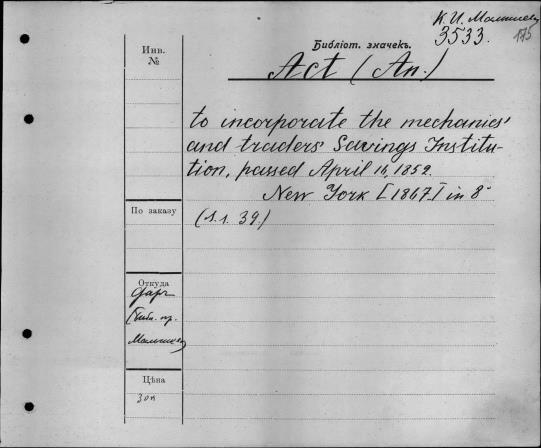 К. И. Малышевъ
3533. 175
Инв.
№
Библіот. значекъ.
Act (An.)
to incorporate the mechanics'
and traders' Savings Institu-
tion, passed April 16, 1852.
New York [1867.] in 8°
По заказу
(s.s. 39.)
Откуда
Даръ
Библ. пр.
Малышева
Цѣна
30 к